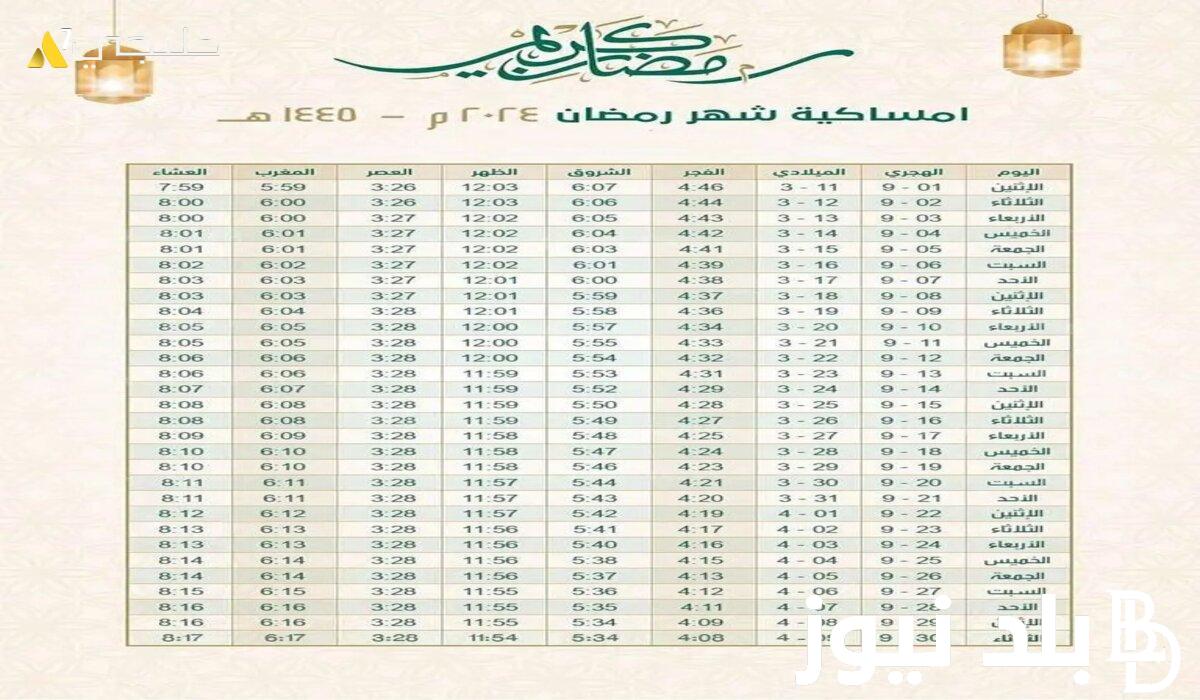 خليجي 7
رمضان كريم
امساكية شهر رمضان ٢٠٢٤ م – ١٤٤٥ هـ
اليوم الهجري الميلادي الفجر الشروق الظهر العصر المغرب العشاء
الإثنين 01 - 9 11 - 3 4:46 6:07 12:03 3:26 5:59 7:59
الثلاثاء 02 - 9 12 - 3 4:44 6:06 12:03 3:26 6:00 8:00
الأربعاء 03 - 9 13 - 3 4:43 6:05 12:02 3:27 6:00 8:00
الخميس 04 - 9 14 - 3 4:42 6:04 12:02 3:27 6:01 8:01
الجمعة 05 - 9 15 - 3 4:41 6:03 12:02 3:27 6:01 8:01
السبت 06 - 9 16 - 3 4:39 6:01 12:02 3:27 6:02 8:02
الأحد 07 - 9 17 - 3 4:38 6:00 12:01 3:27 6:03 8:03
الإثنين 08 - 9 18 - 3 4:37 5:59 12:01 3:27 6:03 8:03
الثلاثاء 09 - 9 19 - 3 4:36 5:58 12:01 3:28 6:04 8:04
الأربعاء 10 - 9 20 - 3 4:34 5:57 12:00 3:28 6:05 8:05
الخميس 11 - 9 21 - 3 4:33 5:55 12:00 3:28 6:05 8:05
الجمعة 12 - 9 22 - 3 4:32 5:54 12:00 3:28 6:06 8:06
السبت 13 - 9 23 - 3 4:31 5:53 11:59 3:28 6:06 8:06
الأحد 14 - 9 24 - 3 4:29 5:52 11:59 3:28 6:07 8:07
الإثنين 15 - 9 25 - 3 4:28 5:50 11:59 3:28 6:08 8:08
الثلاثاء 16 - 9 26 - 3 4:27 5:49 11:59 3:28 6:08 8:08
الأربعاء 17 - 9 27 - 3 4:25 5:48 11:58 3:28 6:09 8:09
الخميس 18 - 9 28 - 3 4:24 5:47 11:58 3:28 6:10 8:10
الجمعة 19 - 9 29 - 3 4:23 5:46 11:58 3:28 6:10 8:10
السبت 20 - 9 30 - 3 4:21 5:44 11:57 3:28 6:11 8:11
الأحد 21 - 9 31 - 3 4:20 5:43 11:57 3:28 6:11 8:11
الإثنين 22 - 9 01 - 4 4:19 5:42 11:57 3:28 6:12 8:12
الثلاثاء 23 - 9 02 - 4 4:17 5:41 11:56 3:28 6:13 8:13
الأربعاء 24 - 9 03 - 4 4:16 5:40 11:56 3:28 6:13 8:13
الخميس 25 - 9 04 - 4 4:15 5:38 11:56 3:28 6:14 8:14
الجمعة 26 - 9 05 - 4 4:13 5:37 11:56 3:28 6:14 8:14
السبت 27 - 9 06 - 4 4:12 5:36 11:55 3:28 6:15 8:15
الأحد 28 - 9 07 - 4 4:11 5:35 11:55 3:28 6:16 8:16
الإثنين 29 - 9 08 - 4 4:09 5:34 11:55 3:28 6:16 8:16
الثلاثاء 30 - 9 09 - 4 4:08 5:34 11:54 3:28 6:17 8:17
بلد نيوز